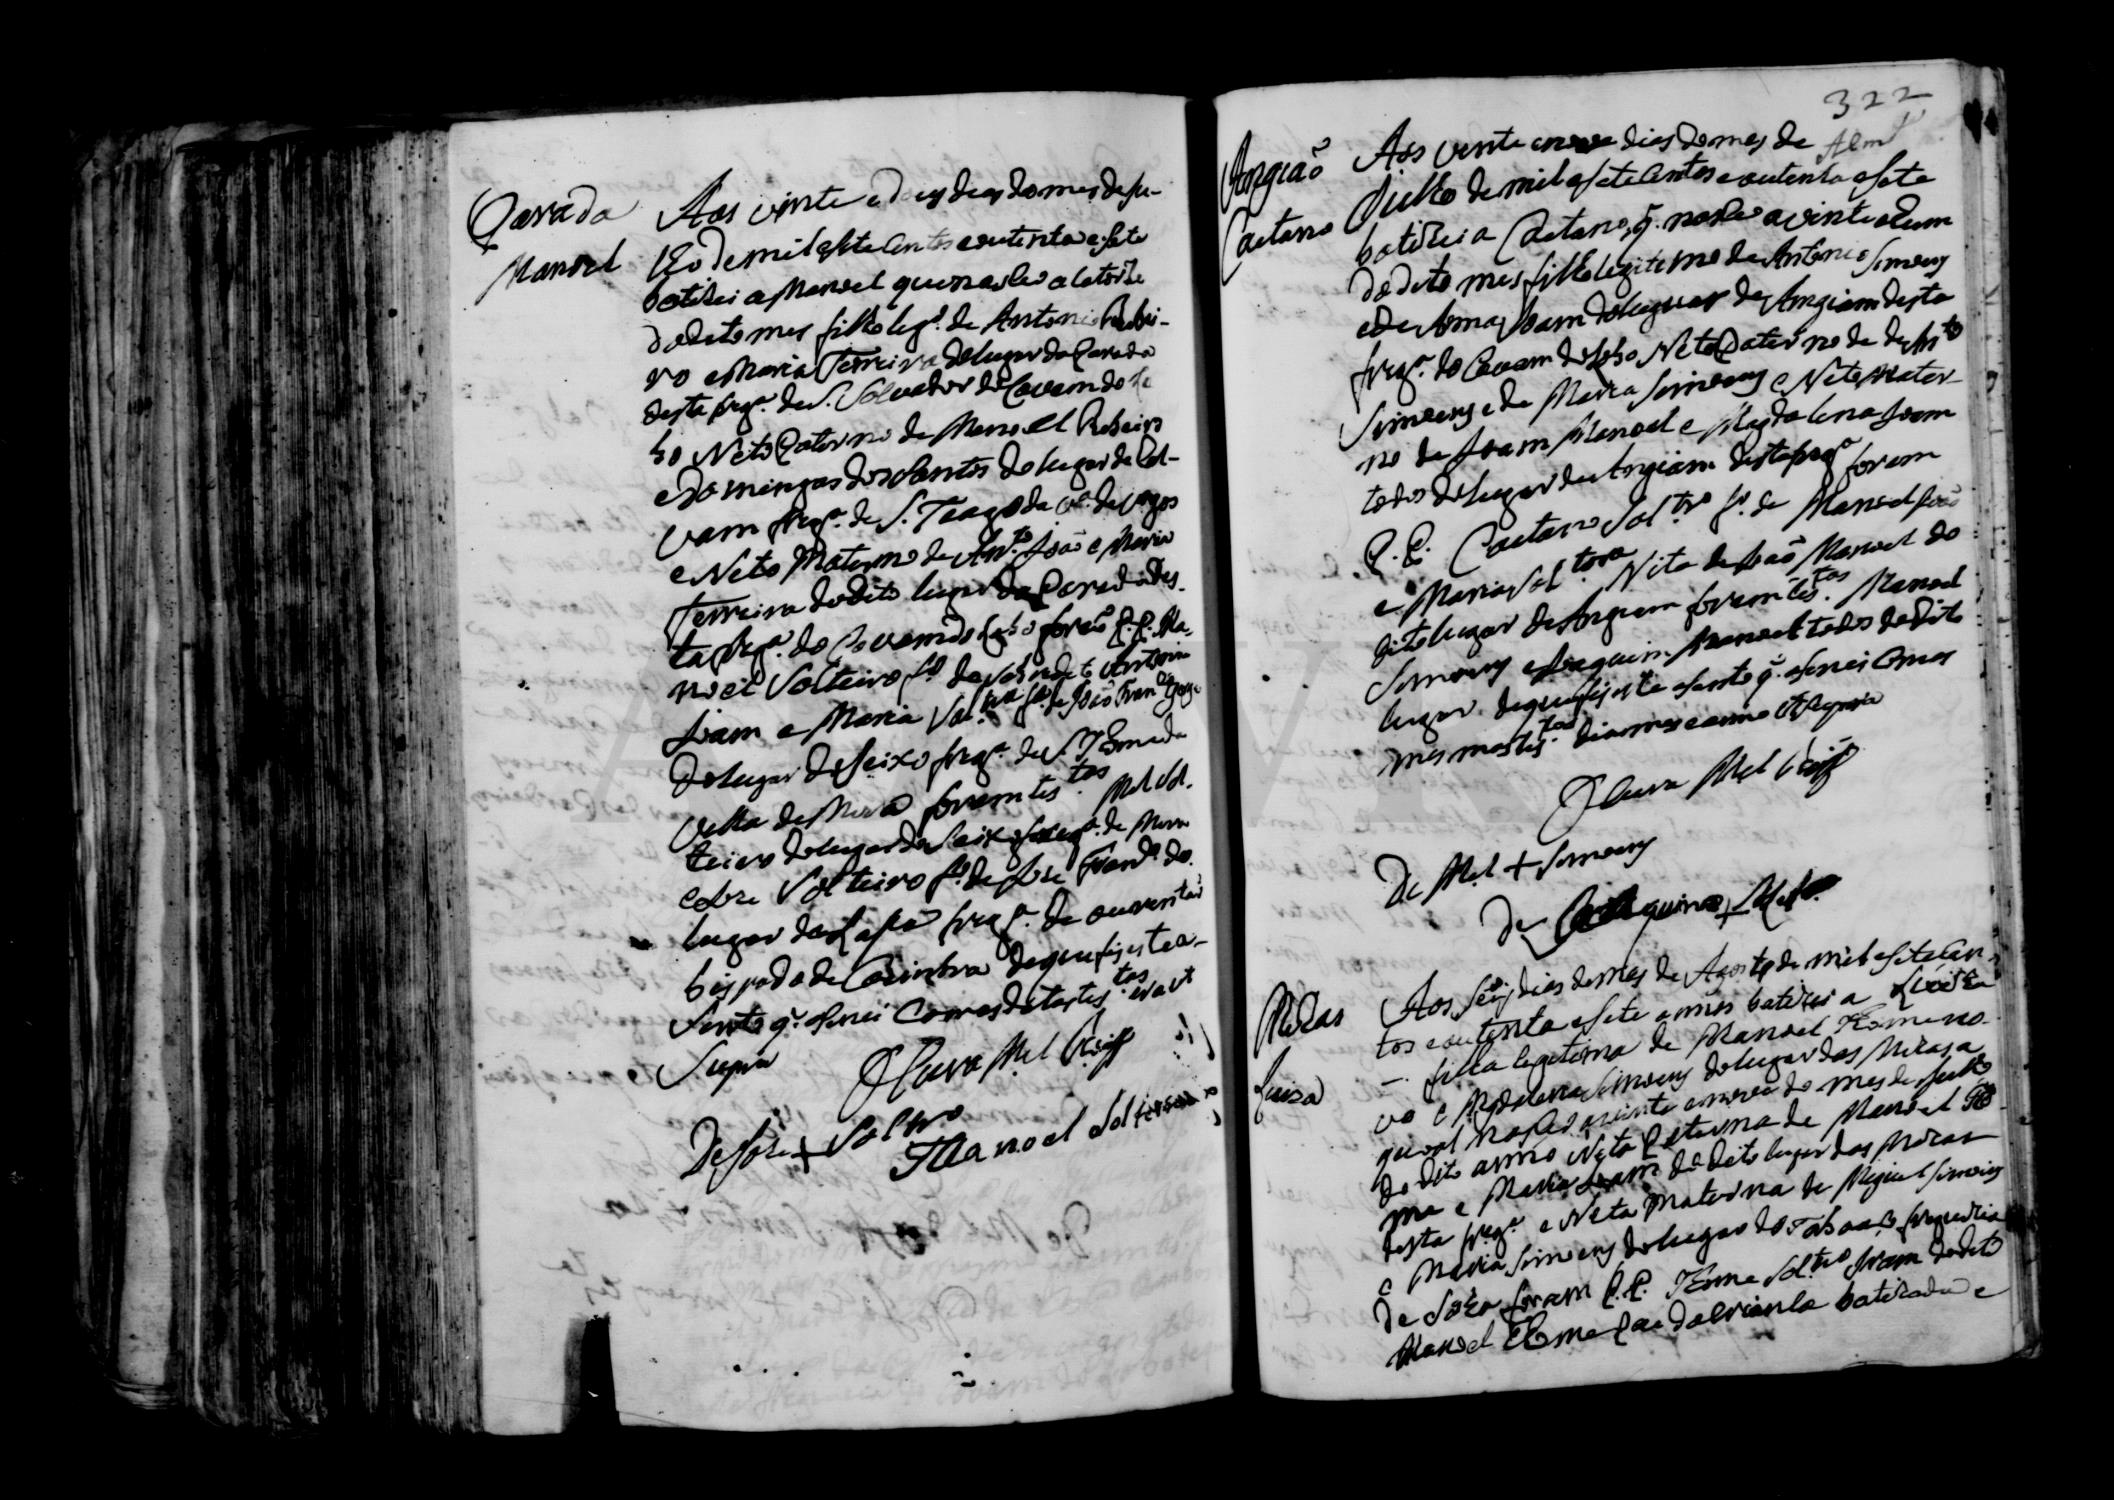 Parada
Manoel
Aos vinte e dous dias do mes de Ju-
lho de mil e sete Centos e outenta e sete
batizei a Manoel que nasceo a Catorze
do dito mes filho leg.º de Antonio Ribei-
ro e Maria Ferreira do lugar da Parada
desta freg.ª de S. Salvador de Covam do Lo
bo Neto Paterno de Manoel Ribeiro
e Domingas dos Santos do lugar de Cal-
vam freg.ª de S. Tiago da V.ª de Vagos
e Neto Materno de Ant.º João e Maria
Ferreira do dito lugar da Parada des-
ta freg.ª do Covam do Lobo forão P.P. Ma-
noel Solteiro f.º de Antonio
Joam e Maria Sol.tra f.ª de João Fran.co
do lugar do Seixo freg.ª de S. Thome da
Villa de Mira foram tes.tas M.el Sol-
teiro do lugar do Seixo freg.ª de Mira
e Joze Solteiro f.º de Joze Fran.co do
lugar da freg.ª de
bispado de Coimbra de que fiz este a-
sento q. asinei Com as ditas tes.tas era ut
Supra
O Cura M.el
De Joze + Sol.tro
Manoel Solteiro
322
Angião
Caetano
Aos vinte e nove dias do mes de
Julho de mil e sete Centos e outenta e sete
batizei a Caetano, q. nasceo a vinte e hum
do dito mes filho legitimo de Antonio Simoens
e de Anna Joam do lugar de Angiam desta
freg.ª do Covam do Lobo Neto Paterno de Ant.º
Simoens e de Maria Simoens e Neto Mater-
no de Joam Manoel e Magdalena Joam
todos do lugar de Angiam desta freg.ª foram
P.P. Caetano Sol.tro f.º de Manoel João
e Maria Sol.teira Neta de João Manoel do
dito lugar de Angiam foram tes.tas Manoel
Simoens e Joaquim Manoel todos do dito
lugar de que fiz este asento q. asinei Com as
mesmas tes.tas dia mes e anno ut supra
O Cura M.el
De M.el + Simoens
De Joaquim + M.el
Mezas
Luiza
Aos seis dias do mes de Agosto de mil e sete Cen-
tos e outenta e sete annos batizei a Luiza
filha legitima de Manoel Thome no-
vo e Magdalena Simoens do lugar das Mezas a
qual nasceo a vinte e nove do mes de Julho
do dito anno Neta Paterna de Manoel Tho
me e Maria Joam do dito lugar das Mezas
desta freg.ª e Neta Materna de Miguel Simoens
e Maria Simoens do lugar do Taboaço freguezia
de Soza foram P.P. Thome Sol.tro Joam do dito
Manoel Thome Pae da Crianca batizada e